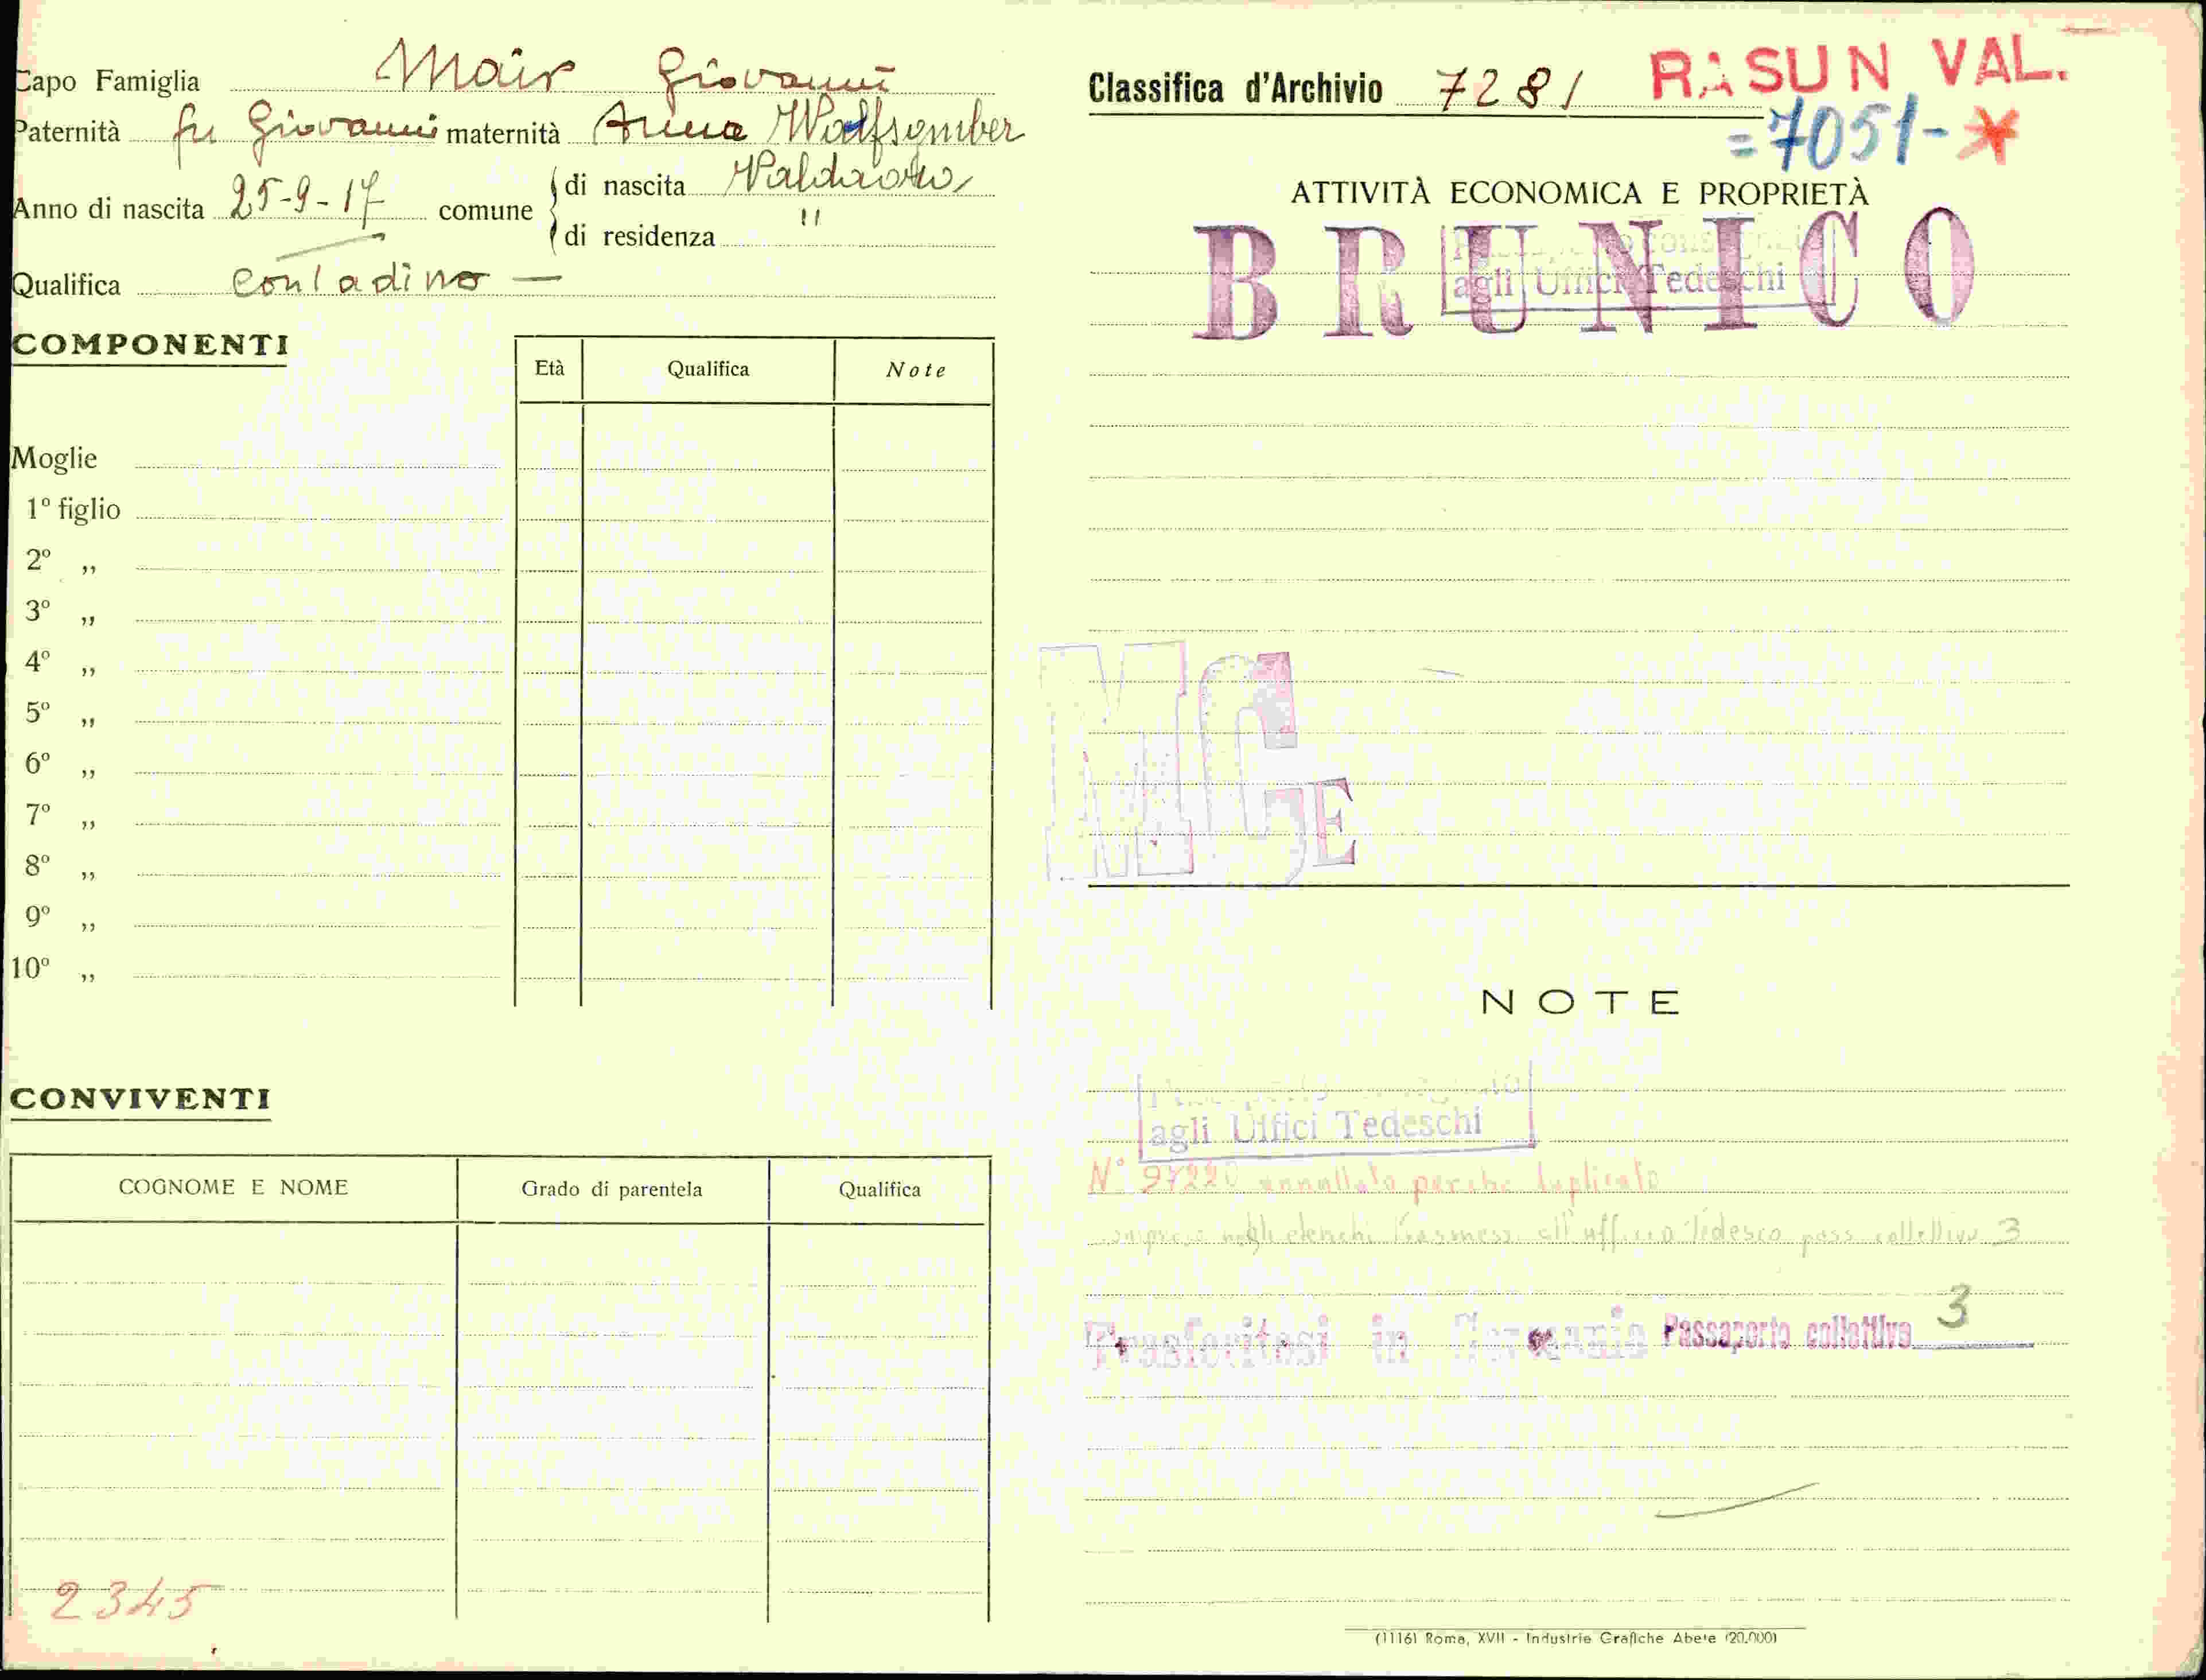 Capo Famiglia Mair Giovanni
Paternità fu Giovanni maternità Anna Wolfsgruber
Anno di nascita 25-9-17 comune
di nascita Valdaora
di residenza "
Qualifica contadino —
COMPONENTI
Età Qualifica Note
Moglie
1º figlio
2º „
3º „
4º „
5º „
6º „
7º „
8º „
9º „
10º „
CONVIVENTI
COGNOME E NOME Grado di parentela Qualifica
2345
Classifica d'Archivio 7281 RASUN VAL.
=7051-*
ATTIVITÀ ECONOMICA E PROPRIETÀ
BRUNICO
agli Uffici Tedeschi
MC E
NOTE
agli Uffici Tedeschi
Nº 97220 annullato perché duplicato
compreso negli elenchi trasmessi all'ufficio tedesco pass. collettivo 3
Trasferitosi in Germania Passaporto collettivo 3
(1116) Roma, XVII - Industrie Grafiche Abete (20.000)